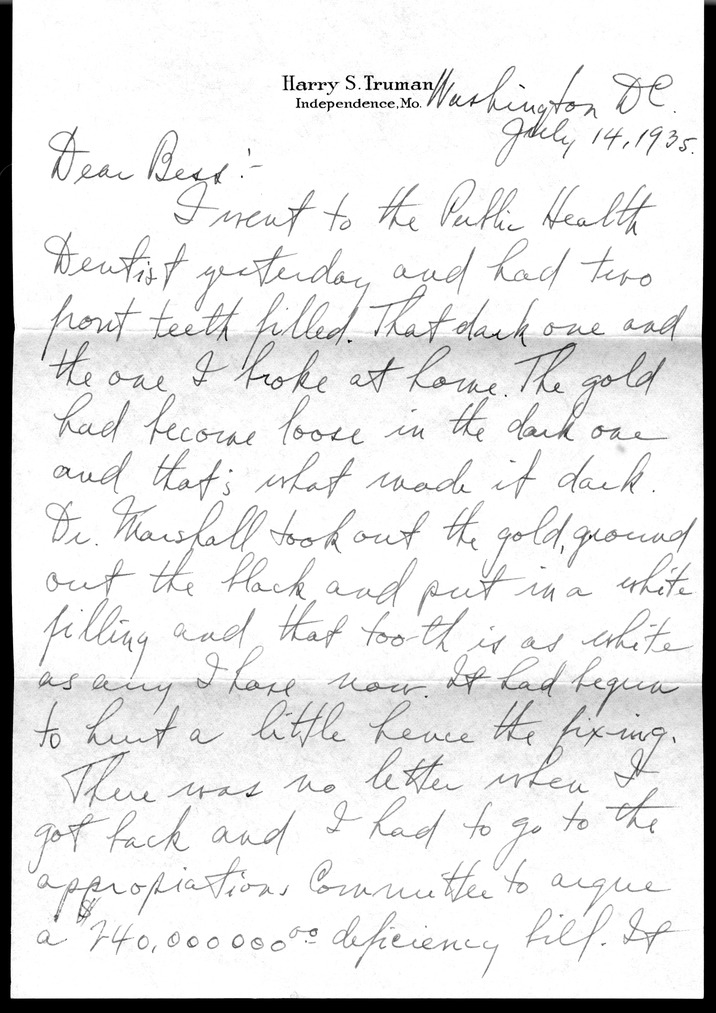 Harry S. Truman
Independence, Mo.
Washington DC.
July 14, 1935.
Dear Bess:-
I went to the Public Health
Dentist yesterday and had two
front teeth filled. That dark one and
the one I broke at home. The gold
had become loose in the dark one
and that's what made it dark.
Dr. Marshall took out the gold, ground
out the black and put in a white
filling and that tooth is as white
as any I have now. It had begun
to hurt a little hence the fixing.
There was no letter when I
got back and I had to go to the
appropiations Committee to argue
a $240,000000.00 deficiency bill. It